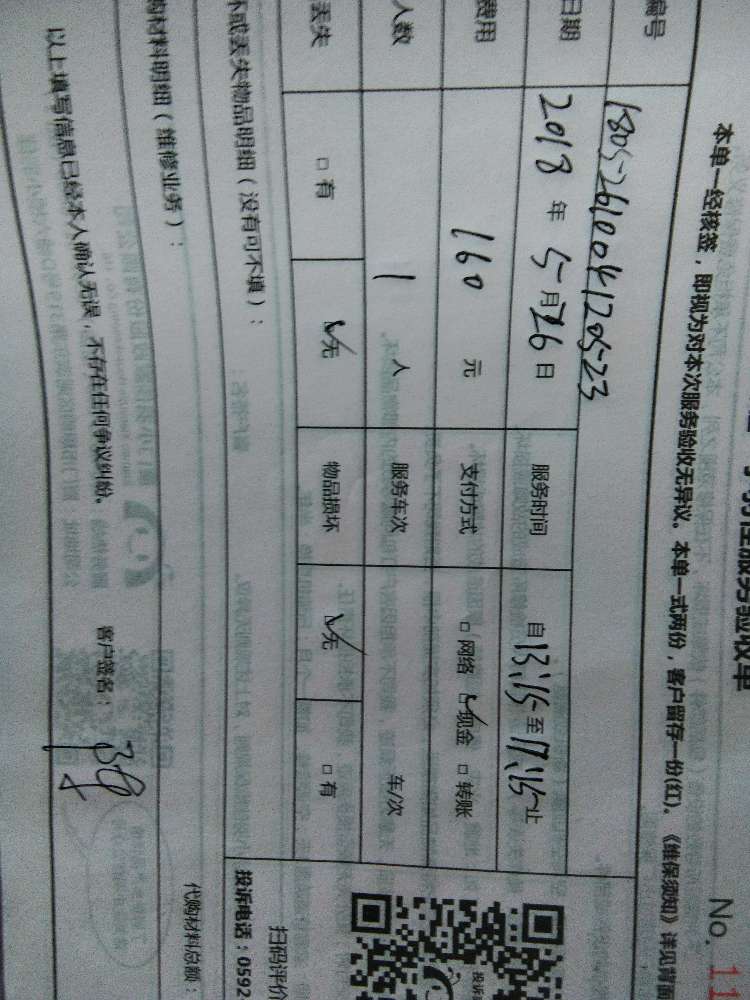 服务验收单
No. 11
本单一经核签，即视为对本次服务验收无异议。本单一式两份，客户留存一份(红)。《维保须知》详见背面
编号 180526100841120523
日期 2018 年 5 月 26 日 服务时间 自 13:15 至 17:15 止
费用 160 元 支付方式 □ 网络 ☑ 现金 □ 转账
人数 1 人 服务车次 车/次
丢失 □ 有 ☑ 无 物品损坏 ☑ 无 □ 有
坏或丢失物品明细（没有可不填）：
扫码评价
投诉电话：0592
购材料明细（维修业务）：
代购材料总额：
以上填写信息已经本人确认无误，不存在任何争议纠纷。 客户签名：